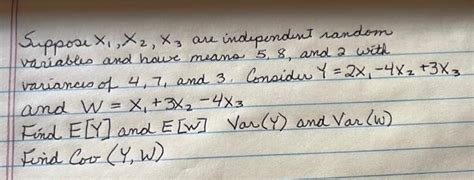 Suppose X₁, X₂, X₃ are independent random
variables and have means 5, 8, and 2 with
variances of 4, 7, and 3. Consider Y = 2X₁ - 4X₂ + 3X₃
and W = X₁ + 3X₂ - 4X₃
Find E[Y] and E[W] Var(Y) and Var(W)
Find Cov (Y, W)